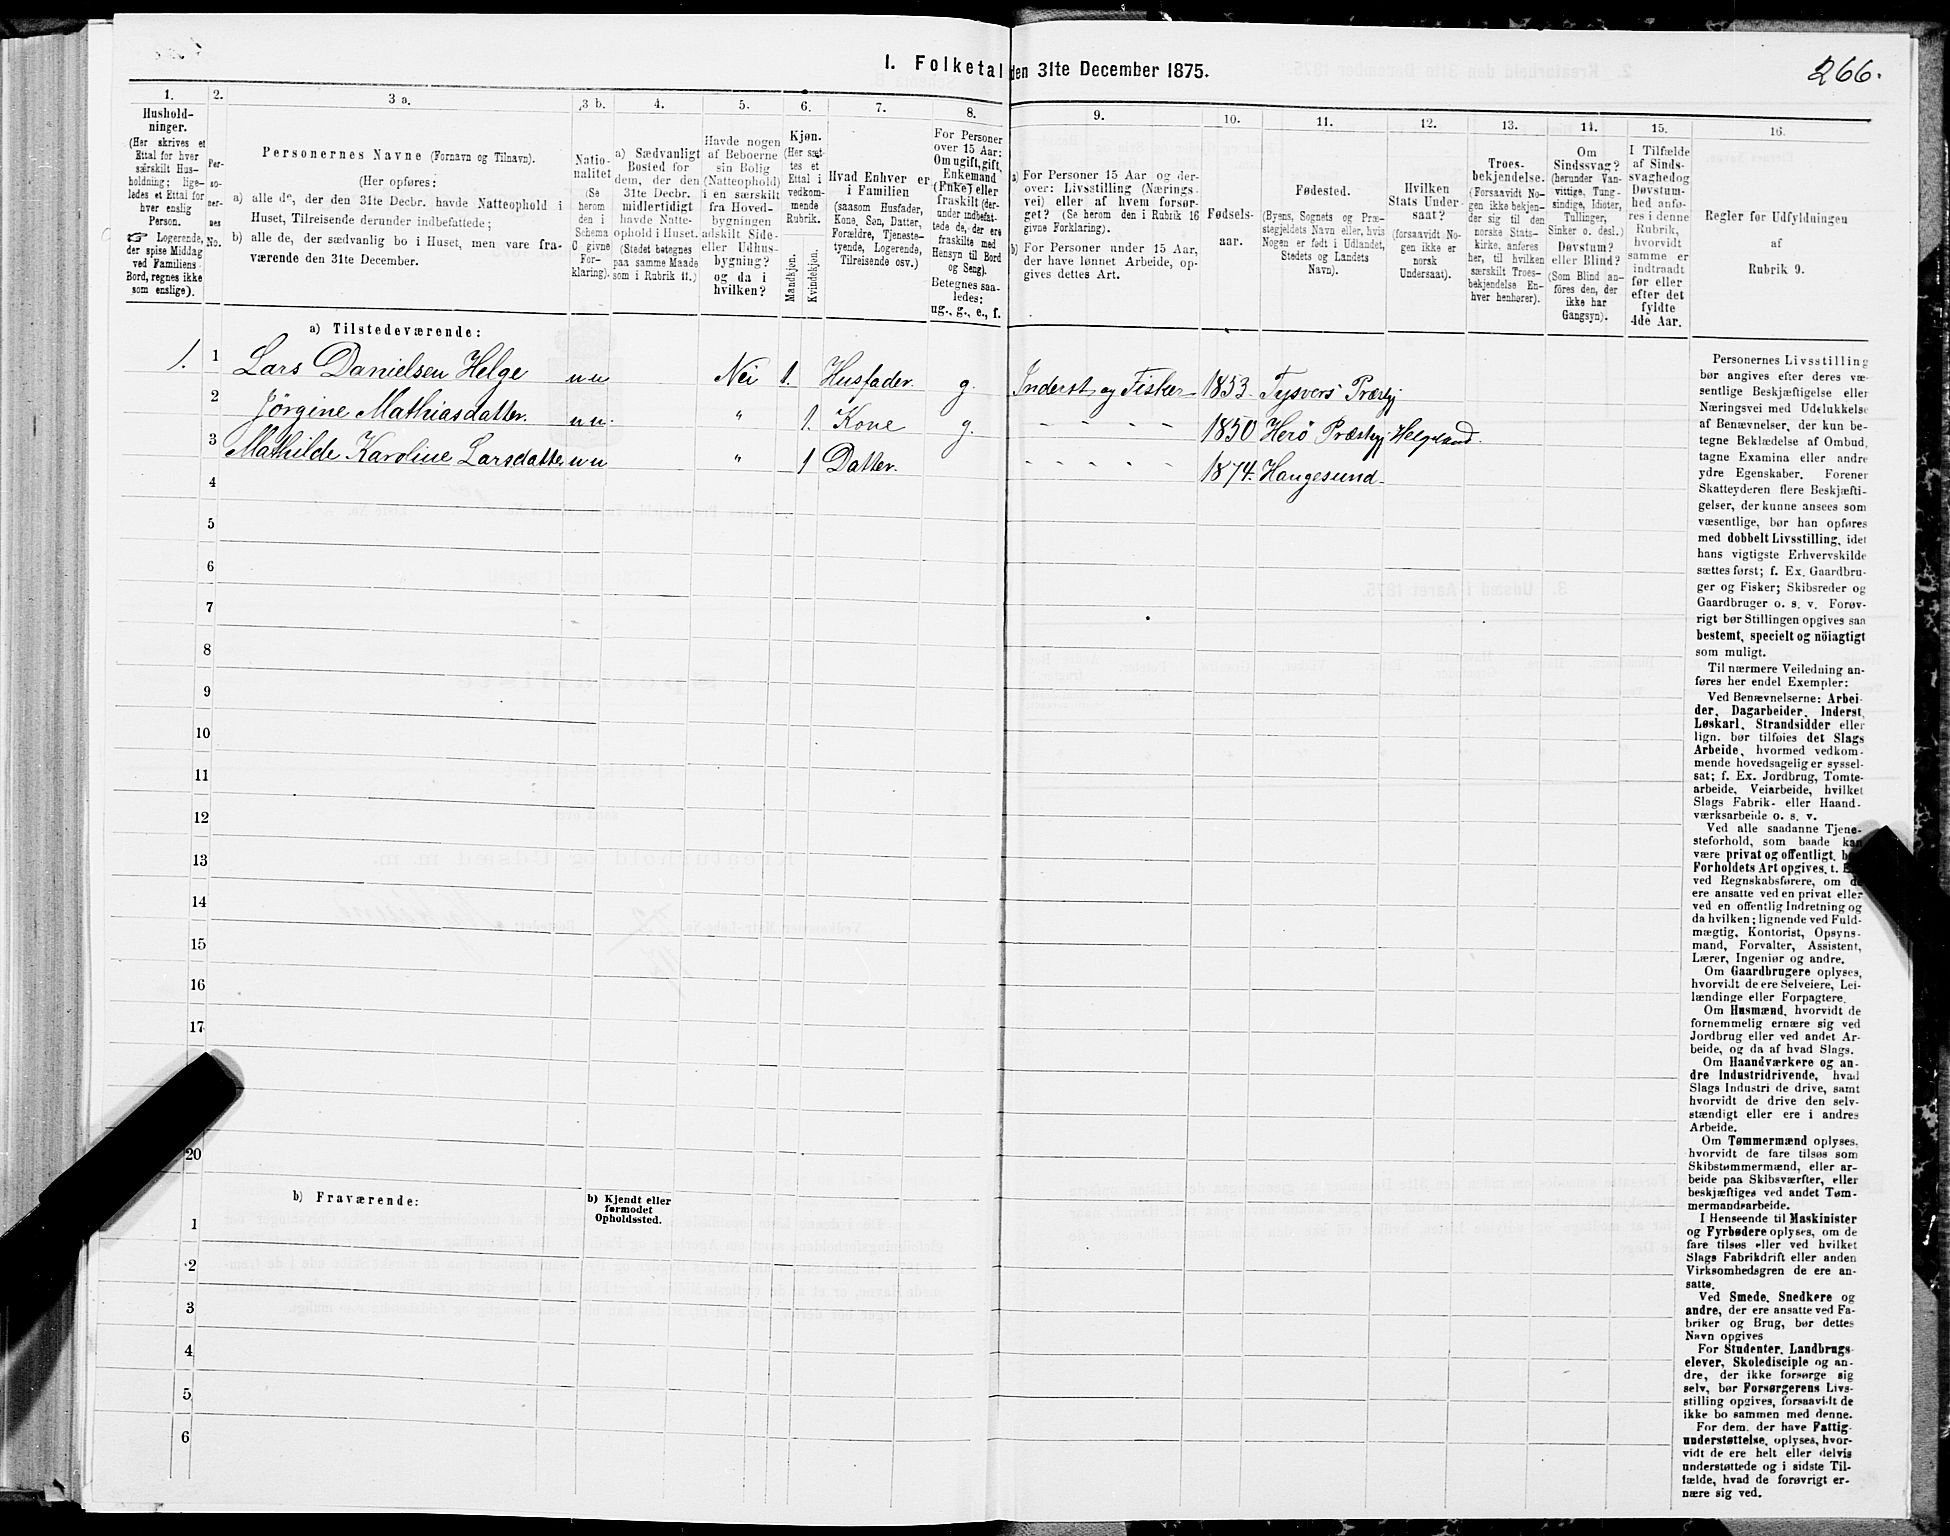 I. Folketal den 31te December 1875.
266.
1.
Hushold-
ninger.
(Her skrives et
Ettal for hver
særskilt Hus-
holdning; lige-
ledes et Ettal for
hver enslig
Person.
☞ Logerende,
der spise Middag
ved Familiens
Bord, regnes ikke
som enslige).
2.
Per-
so-
ner-
nes
No.
3 a.
Personernes Navne (Fornavn og Tilnavn).
(Her opføres:
a) alle de, der den 31te Decbr. havde Natteophold i
Huset, Tilreisende derunder indbefattede;
b) alle de, der sædvanlig bo i Huset, men vare fra-
værende den 31te December.
3 b.
Natio-
nalitet
(Se
herom
den i
Schema
C givne
For-
klaring).
4.
a) Sædvanligt
Bosted for
dem, der den
31te Decbr.
midlertidigt
havde Natte-
ophold i Huset.
(Stedet betegnes
paa samme Maade
som i Rubrik 11.)
5.
Havde nogen
af Beboerne
sin Bolig
(Natteophold)
i en særskilt
fra Hoved-
bygningen
adskilt Side-
eller Udhus-
bygning?
og da i
hvilken?
6.
Kjøn.
(Her sæt-
tes et
Ettal i
vedkom-
mende
Rubrik.
Mandkjøn.
Kvindekjøn.
7.
Hvad Enhver er
i Familien
(saasom Husfader,
Kone, Søn, Datter,
Forældre, Tjeneste-
tyende, Logerende,
Tilreisende osv.).
8.
For Personer
over 15 Aar:
Om ugift, gift,
Enkemand
(Enke) eller
fraskilt (der-
under indbefat-
tede de, der ere
fraskilte med
Hensyn til Bord
og Seng).
Betegnes saa-
ledes:
ug., g., e., f.
9.
a) For Personer 15 Aar og der-
over: Livsstilling (Nærings-
vei) eller af hvem forsør-
get? (Se herom den i Rubrik 16
givne Forklaring).
b) For Personer under 15 Aar,
der have lønnet Arbeide, op-
gives dettes Art.
10.
Fødsels-
aar.
11.
Fødested.
(Byens, Sognets og Præ-
stegjeldets Navn eller, hvis
Nogen er født i Udlandet,
Stedets og Landets
Navn).
12.
Hvilken
Stats Under-
saat?
(forsaavidt No-
gen ikke er
norsk
Undersaat).
13.
Troes-
bekjendelse.
(Forsaavidt No-
gen ikke bekjen-
der sig til den
norske Stats-
kirke, anføres
her, til hvilken
særskilt Troes-
bekjendelse En-
hver henhører).
14.
Om
Sindssvag?
(herunder Van-
vittige, Tung-
sindige, Idioter,
Tullinger,
Sinker o. desl.)
Døvstum?
eller Blind?
(Som Blind an-
føres den, der
ikke har
Gangsyn).
15.
I Tilfælde
af Sinds-
svaghed og
Døvstum-
hed anfø-
res i denne
Rubrik,
hvorvidt
samme er
indtraadt
før eller
efter det
fyldte
4de Aar.
16.
Regler for Udfyldningen
af
Rubrik 9.
a) Tilstedeværende:
1. 1 Lars Danielsen Helge nn Nei 1. Husfader g. Inderst og Fisker 1853. Tysvers Præstgj
2 Jörgine Mathiasdatter. nn. " 1. Kone g. - - - - 1850 Herö Præstgj Helgeland.
3 Mathilde Karoline Larsdatter nn " 1 Datter. - - - - 1874. Haugesund
4
5
6
7
8
9
10
11
12
13
14
15
16
17
20
b) Fraværende:
b) Kjendt eller
formodet
Opholdssted.
1
2
3
4
5
6
Personernes Livsstilling
bør angives efter deres væ-
sentlige Beskjæftigelse eller
Næringsvei med Udelukkelse
af Benævnelser, der kun be-
tegne Beklædelse af Ombud,
tagne Examina eller andre
ydre Egenskaber. Forener
Skatteyderen flere Beskjæfti-
gelser, der kunne ansees som
væsentlige, bør han opføres
med dobbelt Livsstilling, idet
hans vigtigste Erhvervskilde
sættes først; f. Ex. Gaardbru-
ger og Fisker; Skibsreder og
Gaardbruger o. s. v. Forøv-
rigt bør Stillingen opgives saa
bestemt, specielt og nöiagtigt
som muligt.
Til nærmere Veiledning an-
føres her endel Exempler:
Ved Benævnelserne: Arbei-
der, Dagarbeider, Inderst,
Løskarl, Strandsidder eller
lign. bør tilføies det Slags
Arbeide, hvormed vedkom-
mende hovedsagelig er syssel-
sat; f. Ex. Jordbrug, Tomte-
arbeide, Veiarbeide, hvilket
Slags Fabrik- eller Haand-
værksarbeide o. s. v.
Ved alle saadanne Tjene-
steforhold, som baade kan
være privat og offentligt,
Forholdets Art opgives. t.
ved Regnskabsførere, om
ere ansatte ved en privat eller
ved en offentlig Indretning og
da hvilken; lignende ved Fuld-
mægtig, Kontorist, Opsyns-
mand, Forvalter, Assistent,
Lærer, Ingeniør og andre.
Om Gaardbrugere oplyses,
hvorvidt de ere Selveiere, Lei-
lændinge eller Forpagtere.
Om Husmænd, hvorvidt de
fornemmelig ernære sig ved
Jordbrug eller ved andet Ar-
beide, og da af hvad Slags.
Om Haandværkere og an-
dre Industridrivende, hvad
Slags Industri de drive, samt
hvorvidt de drive den selv-
stændigt eller ere i andres
Arbeide.
Om Tømmermænd oplyses,
hvorvidt de fare tilsøs som
Skibstømmermænd, eller ar-
beide paa Skibsværfter, eller
beskjæftiges ved andet Tøm-
mermandsarbeide.
I Henseende til Maskinister
og Fyrbødere oplyses, om de
fare tilsøs eller ved hvilket
Slags Fabrikdrift eller anden
Virksomhedsgren de ere an-
satte.
Ved Smede, Snedkere og
andre, der ere ansatte ved Fa-
briker og Brug, bør dettes
Navn opgives
For Studenter, Landbrugs-
elever, Skoledisciple og an-
dre, der ikke forsørge sig
selv, bør Forsørgerens Livs-
stilling opgives, forsaavidt de
ikke bo sammen med denne.
For dem, der have Fattig-
understøttelse, oplyses, hvor-
vidt de ere helt eller delvis
understøttede og i sidste Til-
fælde, hvad de forøvrigt er-
nære sig ved.